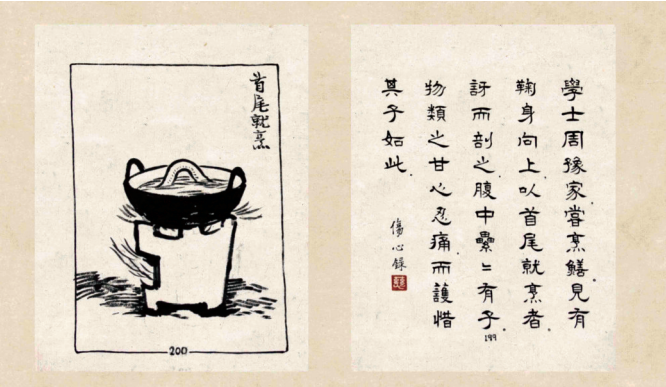 首尾就烹
200
學士周豫家嘗烹鱔見有
鞠身向上以首尾就烹者
訝而剖之腹中纍纍有子
物類之甘心忍痛而護惜
其子如此
傷心錄
199